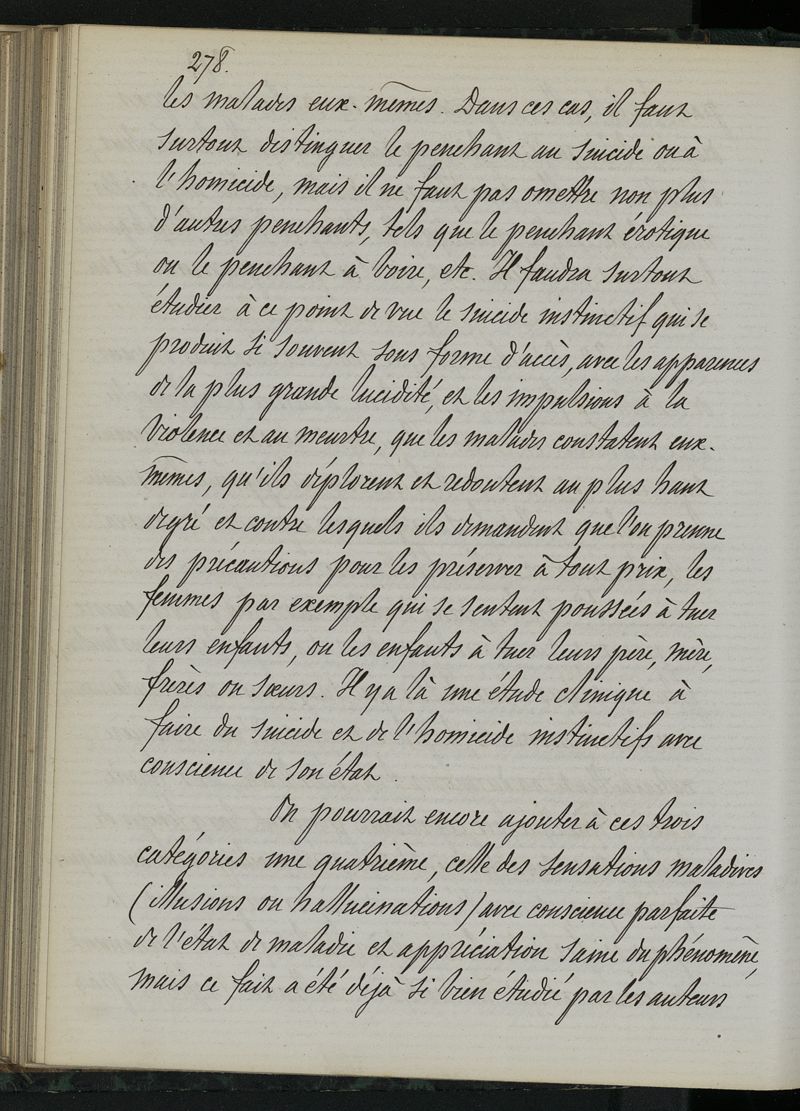 278.
les malades eux-mêmes. Dans ces cas, il faut
surtout distinguer le penchant au suicide ou à
l'homicide, mais il ne faut pas omettre non plus
d'autres penchants, tels que le penchant érotique
ou le penchant à boire, etc. Il faudra surtout
étudier à ce point de vue le suicide instinctif qui se
produit si souvent sous forme d'accès, avec les apparences
de la plus grande lucidité, et les impulsions à la
violence et au meurtre, que les malades constatent eux-
mêmes, qu'ils déplorent et redoutent au plus haut
degré et contre lesquels ils demandent que l'on prenne
des précautions pour les préserver à tout prix, les
femmes par exemple qui se sentent poussées à tuer
leurs enfants, ou les enfants à tuer leurs père, mère,
frères ou sœurs. Il y a là une étude clinique à
faire du suicide et de l'homicide instinctifs avec
conscience de son état.
On pourrait encore ajouter à ces trois
catégories une quatrième, celle des sensations maladives
(illusions ou hallucinations) avec conscience parfaite
de l'état de maladie et appréciation saine du phénomène,
mais ce fait a été déjà si bien étudié par les auteurs